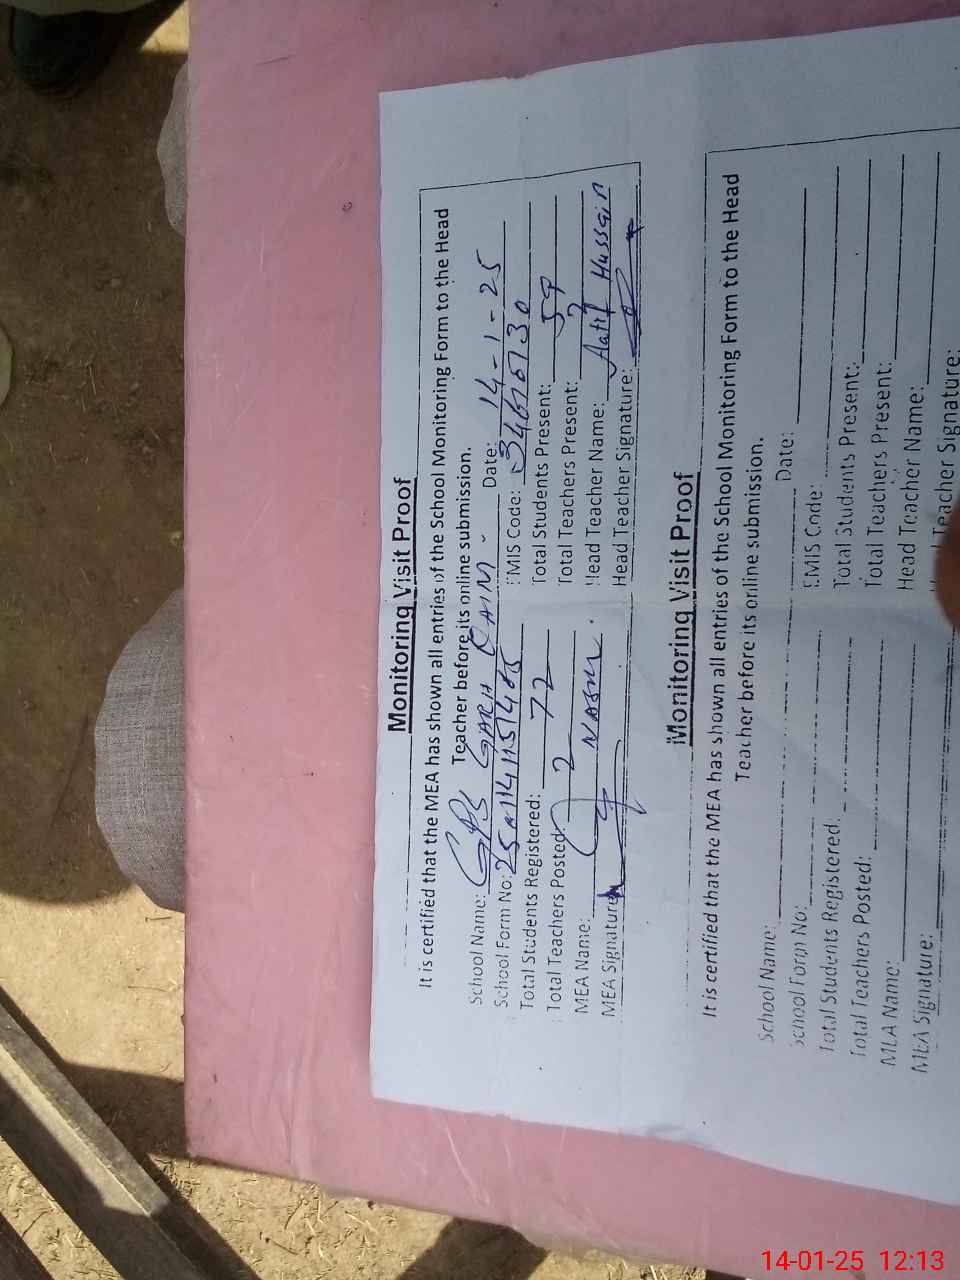 Monitoring Visit Proof
It is certified that the MEA has shown all entries of the School Monitoring Form to the Head
Teacher before its online submission.
School Name: GPS GARHI QAIM - Date: 14-1-25
School Form No: EMIS Code:
Total Students Registered: 72 Total Students Present: 59
Total Teachers Posted: 2 Total Teachers Present: 2
MEA Name: Head Teacher Name: Aatif Hussain
MEA Signature: Head Teacher Signature:
Monitoring Visit Proof
It is certified that the MEA has shown all entries of the School Monitoring Form to the Head
Teacher before its online submission.
School Name: Date:
School Form No: EMIS Code:
Total Students Registered: Total Students Present:
Total Teachers Posted: Total Teachers Present:
MEA Name: Head Teacher Name:
MEA Signature: Teacher Signature:
14-01-25 12:13